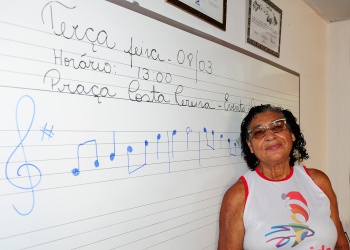 Terça feira - 08/03
Horário: 13:00
Praça Costa Pereira -